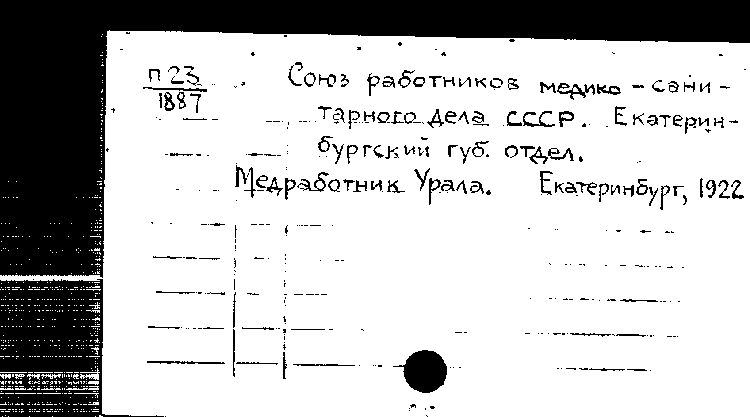 П 23
1887
Союз работников медико-сани-
тарного дела СССР. Екатерин-
бургский губ. отдел.
Медработник Урала. Екатеринбург, 1922